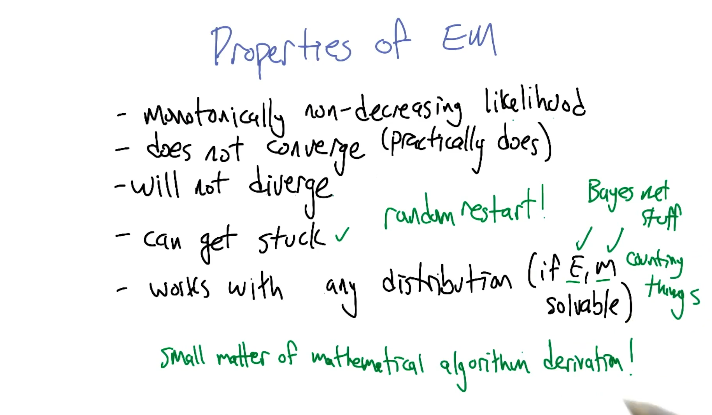 Properties of EM
- monotonically non-decreasing likelihood
- does not converge (practically does)
- will not diverge
- can get stuck ✓ random restart!
- works with any distribution (if E, M solvable)
Bayes net stuff
counting things
small matter of mathematical algorithm derivation!